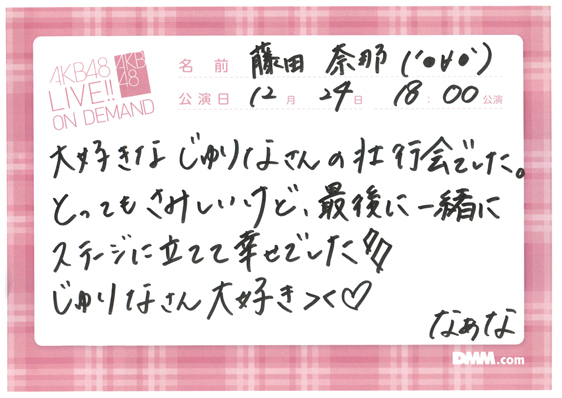 AKB48
LIVE!!
ON DEMAND
AKB
48
名前 藤田 奈那 (´•∀•`)
公演日 12月 24日 18:00公演
大好きな じゅりなさんの壮行会でした。
とってもさみしいけど、最後に一緒に
ステージに立てて幸せでした
じゅりなさん大好きっ♡
なぁな
DMM.com